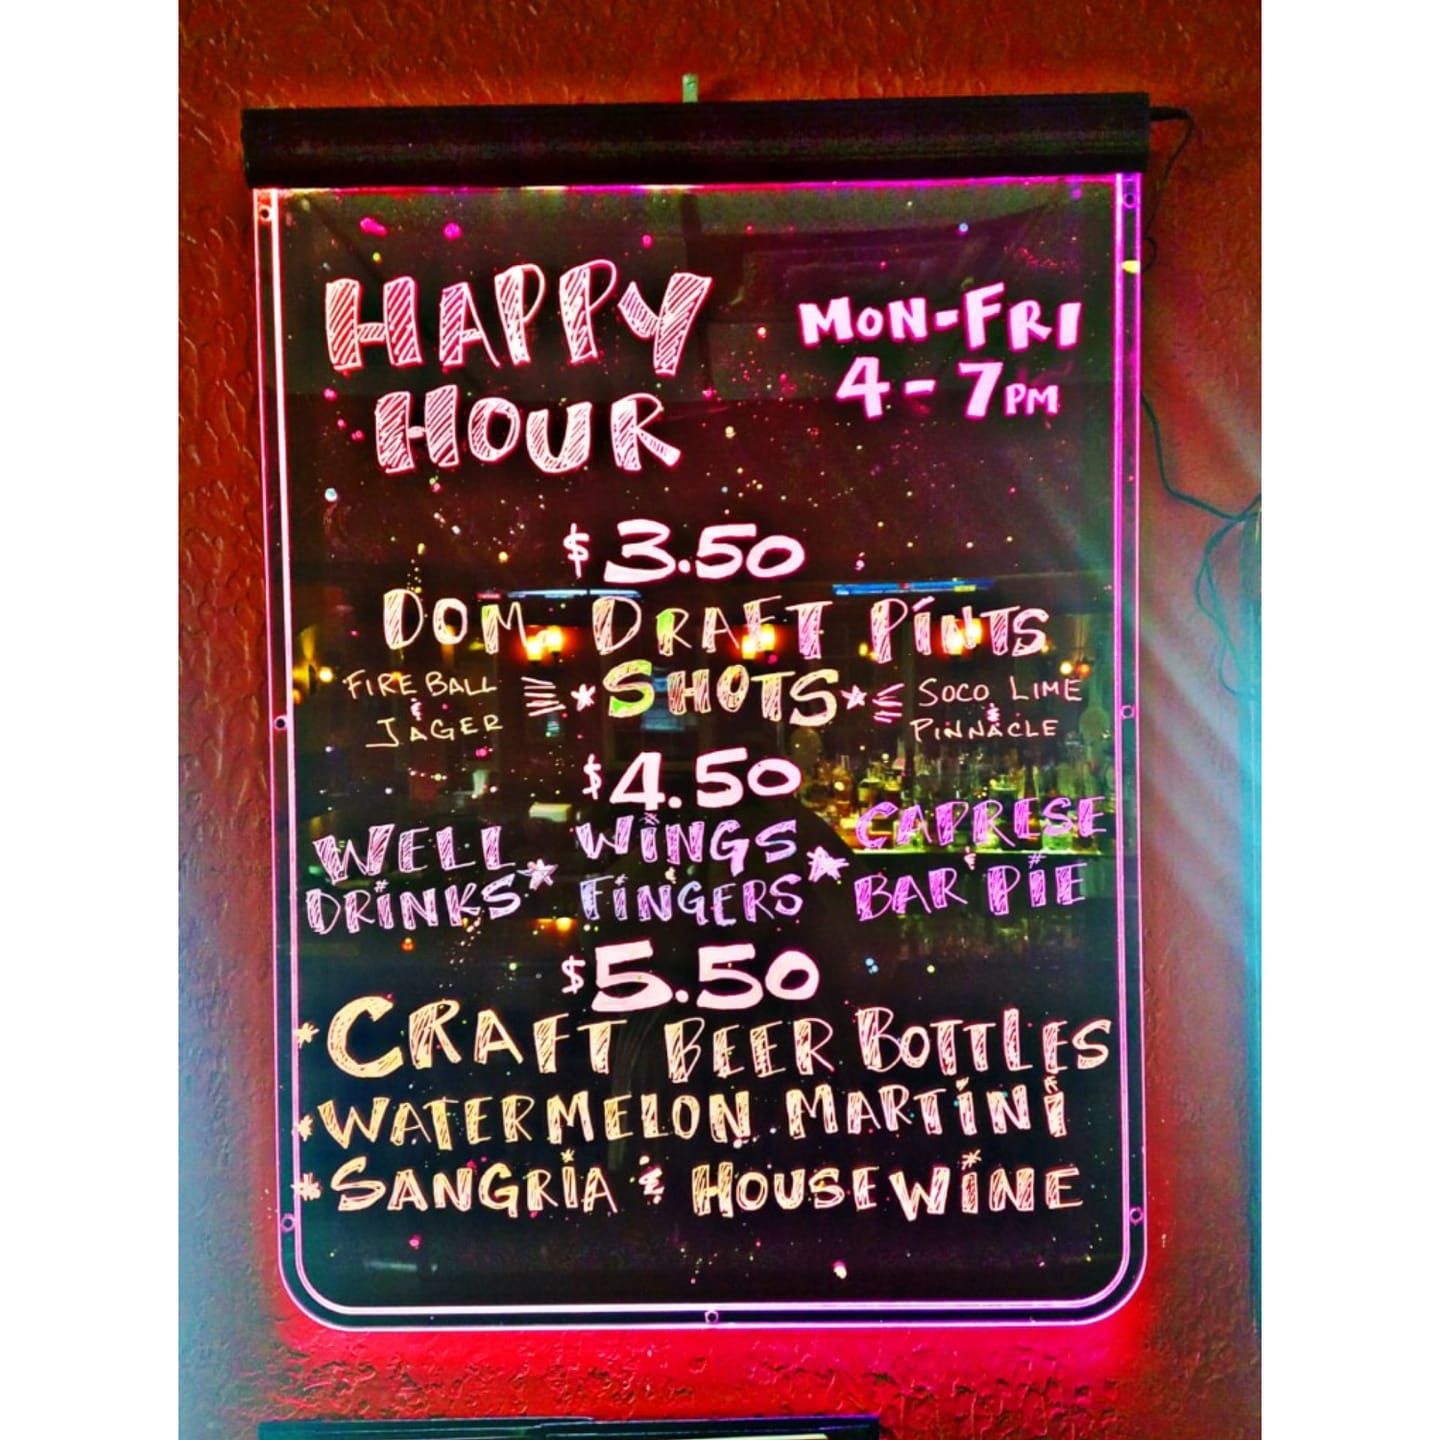 HAPPY
HOUR
MON-FRI
4-7PM
$3.50
DOM. DRAFT PINTS
FIREBALL
&
JAGER
SHOTS
SOCO LIME
&
PINNACLE
$4.50
WELL
DRINKS
WINGS
&
FINGERS
CAPRESE
&
BAR PIE
$5.50
* CRAFT BEER BOTTLES
* WATERMELON MARTINI
* SANGRIA & HOUSE WINE